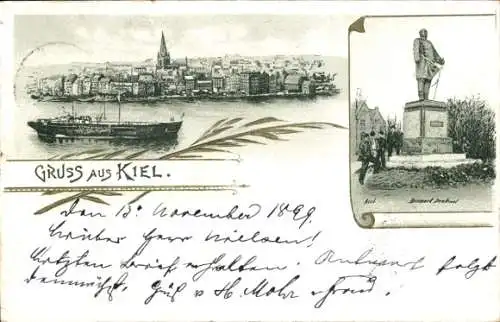 GRUSS AUS KIEL.
Bismarck Denkmal
Den 13. November 1899.
Herr Nielsen!
Letzten Brief erhalten. Antwort folgt
demnächst, Gruß v. H. Mohr